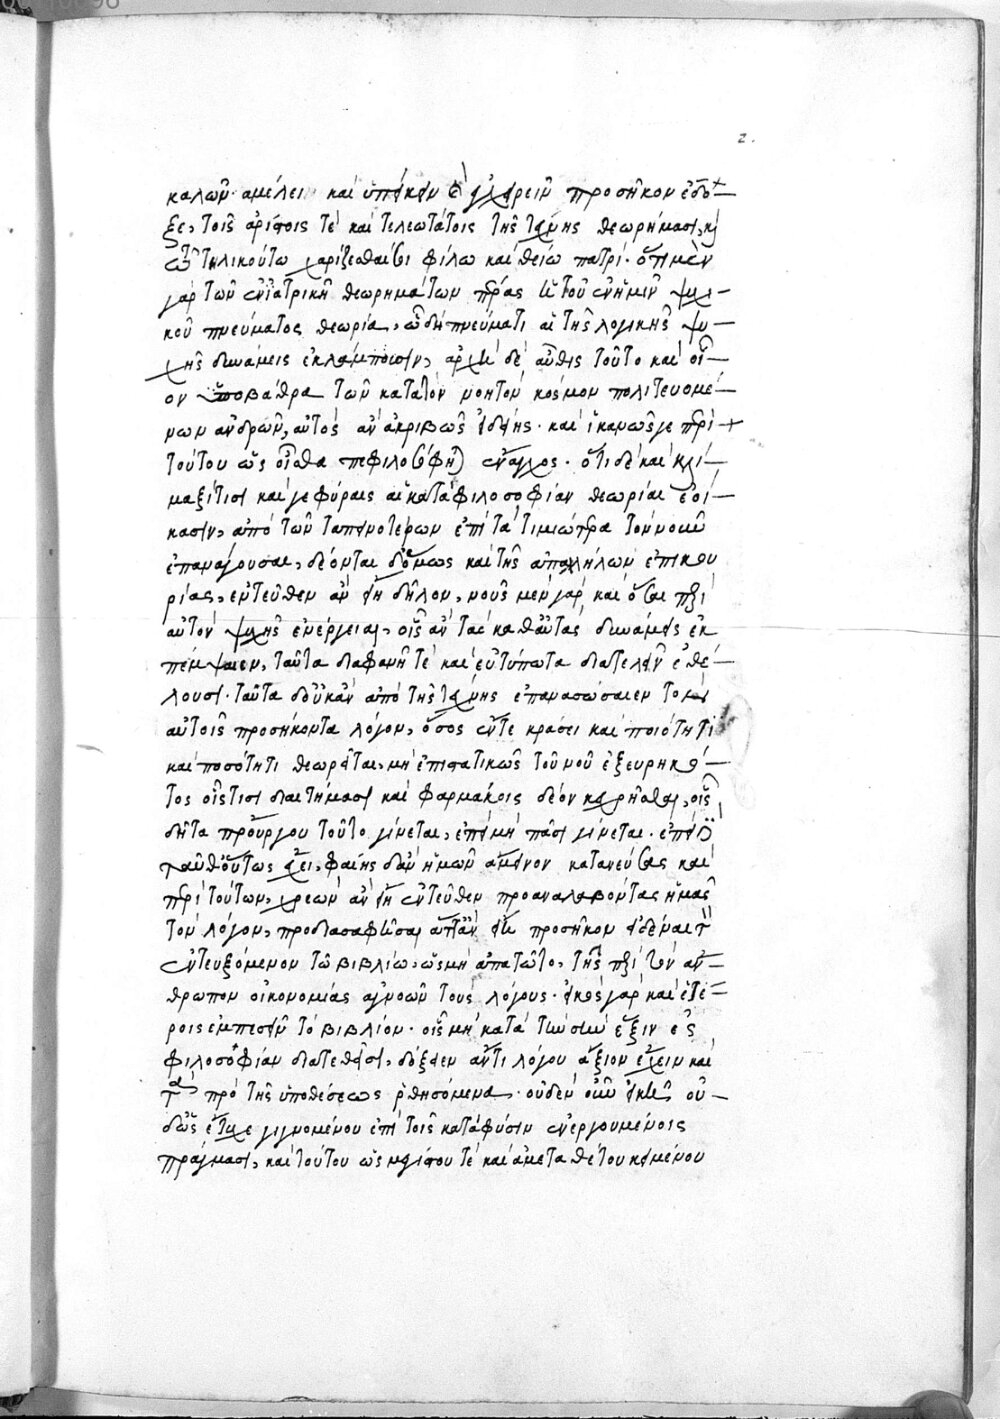 2.
καλῶν ἀμέλει καὶ ὑπείκειν προσῆκον ἔδο
ξε, τοῖς ἀρίστοις τὲ καὶ τελεωτάτοις τῆς τέχνης θεωρήμασι, κỳ
τηλικούτω χαρίζεσθαι φίλω καὶ θείω πατρί. ὅτι μὲν
γὰρ τῶν ἐν ἰατρικῇ θεωρημάτων ἡ τοῦ ἐν ἡμῖν ψυχι
κοῦ πνεύματος θεωρία, ὧ δὴ πνεύματι αἱ τῆς λογικῆς ψυ
χῆς δυνάμεις ἐκλάμπουσιν, ἀρχὴ δὲ αὖθις τοῦτο καὶ οἷ
ον ὑποβάθρα τῶν κατὰ τὸν νοητὸν κόσμον πολιτευομέ
νων ἀνδρῶν, αὐτὸς ἂν ἀκριβῶς εἰδείης. καὶ ἱκανῶς γε περὶ
τούτου ὡς οἶσθα πεφιλοσόφηται ἐναγχος. ὅτι δὲ καὶ κλί
μαξί τισι καὶ γεφύραις αἱ κατὰ φιλοσοφίαν θεωρίαι ἐοί
κασιν, ἀπὸ τῶν ταπεινοτέρων ἐπὶ τὰ τιμιώτερα τὸν νοῦν
ἐπανάγουσαι, δέονται δ' ὅμως καὶ τῆς ἀπ' ἀλλήλων ἐπικου
ρίας, ἐντεῦθεν ἂν εἴη δῆλον, νοῦς μὲν γὰρ καὶ ὅσαι περὶ
αὐτὸν ψυχῆς ἐνέργειαι, οἷς ἂν τὰς καθ' αὑτὰς δυνάμεις ἐκ
πέμψαιεν, ταῦτα διαφανῆ τὲ καὶ εὐτύπωτα διατελεῖν ἐθέ
λουσι. ταῦτα δ' οὐκ ἂν ἀπὸ τῆς τέχνης ἐπανασώσαιεν τὸν
αὐτοῖς προσήκοντα λόγον, ὅσος ἔν τε κράσει καὶ ποιότητι
καὶ ποσότητι θεωρεῖται, μὴ ἐπιστατικῶς τοῦ νοῦ ἐξευρηκό
τος οἷς τισι διαιτήμασι καὶ φαρμάκοις δέον κεχρῆσθαι, οἷς
δῆτα προὔργου τοῦτο γίνεται, ἐπεὶ μὴ πᾶσι γίνεται. ἐπεὶ δὲ
ταῦθ' οὕτως ἔχει, φαίης δ' ἂν ἡμῶν ἄμεινον κατανεύσας καὶ
περὶ τούτων, χρεὼν ἂν εἴη ἐντεῦθεν προαναλαβόντας ἡμᾶς
τὸν λόγον, προδιασαφῆσαι προσῆκον εἰδέναι τὸν
ἐντευξόμενον τῶ βιβλίω, ὡς μὴ ἀπατῶτο, τῆς περὶ τὸν ἄν
θρωπον οἰκονομίας ἀγνοῶν τοὺς λόγους. εἰκὸς γὰρ καὶ ἑτέ
ροις ἐμπεσεῖν τὸ βιβλίον. οἷς μὴ κατὰ τὴν σὴν ἕξιν εἰς
φιλοσοφίαν διατεθεῖσι, δόξειεν ἄν τι λόγου ἄξιον ἔχειν καὶ
τὰ πρὸ τῆς ὑποθέσεως ῥηθησόμενα. οὐδὲν οὖν εἰκῆ οὐ
δ' ὡς ἔτυχε γιγνομένου ἐπὶ τοῖς κατὰ φύσιν ἐνεργουμένοις
πράγμασι, καὶ τούτου ὡς μεγίστου τὲ καὶ ἀμεταθέτου κειμένου